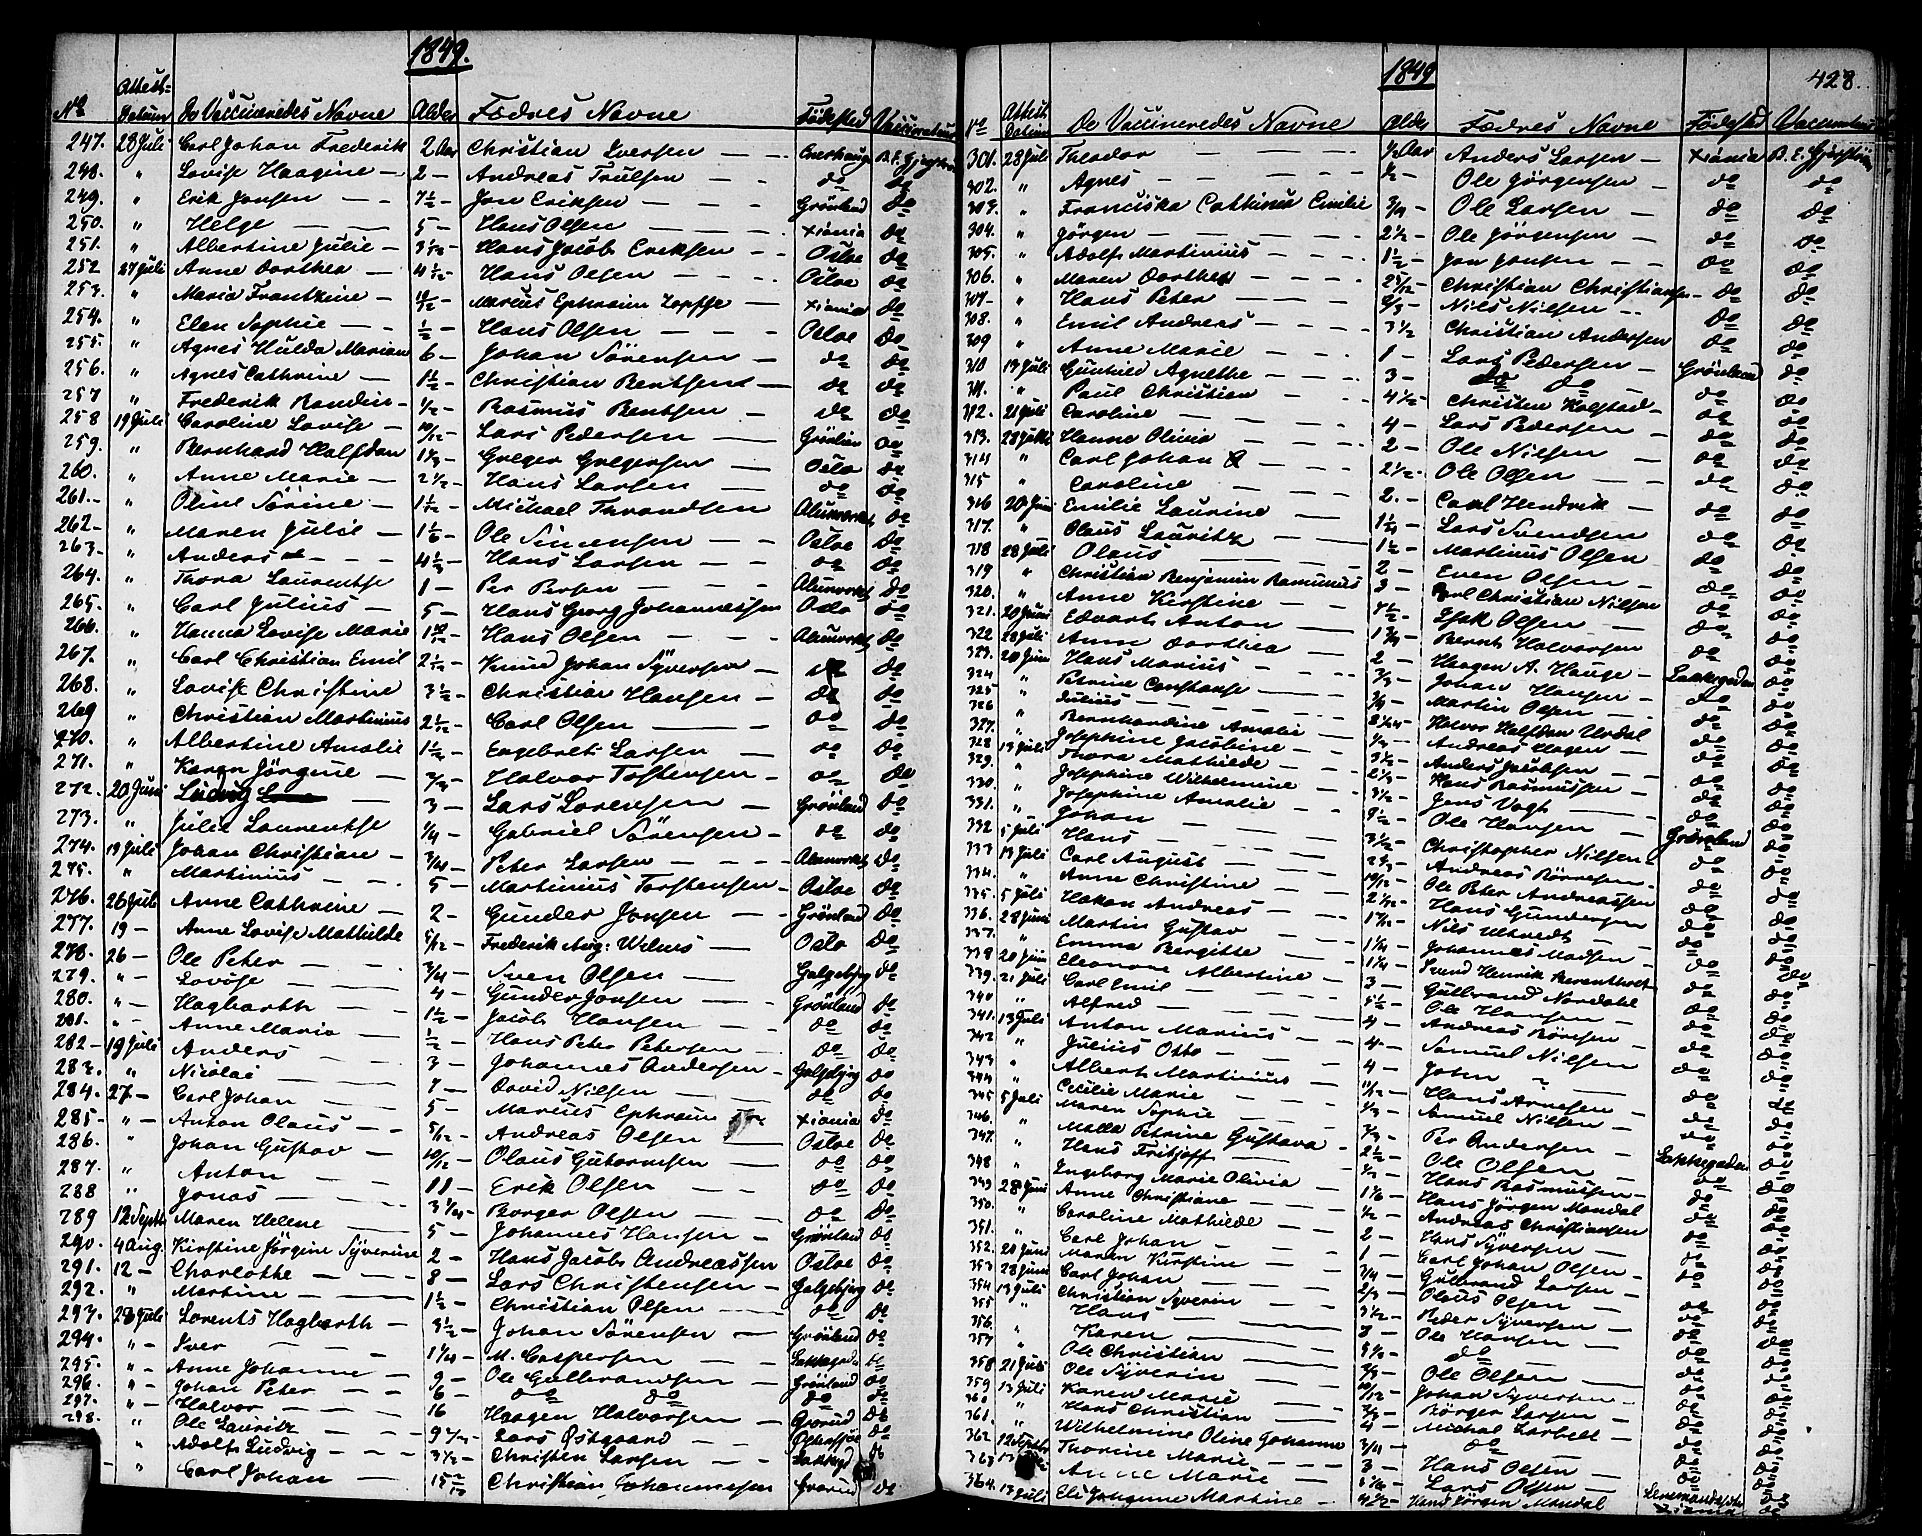 1849.
No Attest. Datum De Vaccineredes Navne Alder Fædres Navne Födested Vaccinateur
247. 28 Juli Carl Johan Frederik 2 Aar Christian Iversen Enerhaug
248. " Lovise Haagine 2 Andreas Trulsen do do
249. " Erik Jonsen 7 1/2 Jon Eriksen Grönland do
250. " Helge 5 Hans Olsen Xiania do
251. " Albertine Julie Hans Jacob Eriksen Osloe do
252 27 Juli Anne Dorthea Hans Olsen Osloe do
253. " Maria Frantzine Marcus Ephraim Xiania do
254. " Elen Sophie 1/2 Hans Olsen Osloe do
255. " Agnes Hulda Mariane 6 Johan Sörensen do do
256. " Agnes Cathrine 1 1/2 Christian Bentsen do do
257 " Frederik 1/2 Rasmus Bentsen do do
258 19 Juli Caroline Lovise 10/12 Lars Pedersen Grönland do
259. " Bernhard Halfdan Greger Gregersen Oslo do
260. " Anne Marie 2 1/2 Hans Larsen do do
261. " Oline Sörine Michael Throndsen Alunverket do
262 " Maren Julie Ole Simensen Osloe do
263 " Anders Hans Larsen do do
264. " Thora Laurentse 1 Per Persen Alunverket do
265. " Carl Julius 5 Hans Georg Johannessen Oslo do
266. " Hanna Lovise Marie Hans Olsen Alunverket do
267. " Carl Christian Emil Knud Johan Syversen do do
268. " Lovise Christine 3 1/2 Christian Hansen do do
269 " Christian Martinius Carl Olsen do do
270. " Albertine Amalie Engebret Larsen do do
271. " Karen Jörgine 2/3 Halvor Torstensen do do
272. 20 Juni Ludvig 3 Lars Lorensen Grönland do
273. " Julie Laurentse 1/4 Gabriel Sörensen do do
274. 19 Juli Johan Christian 3/4 Peter Larsen Alunverket do
275. " Martinius 5 Martinius Torstensen Osloe do
276. 26 Juli Anne Cathrine 2 Gunder Jonsen Grönland do
277. 19 Anne Lovise Mathilde 5/12 Frederik Aug: Oslo do
278. 26 Ole Peter 3/4 Sven Olsen Galgebjrg do
279. " Lovise 4 Gunder Jonsen Grönland do
280. " Hagbarth 1 1/2 Jacob Hansen do do
281. " Anne Maria 1/2 Hans Peter Petersen do do
282 19 Juli Anders 3 Johannes Andersen Galgebjrg do
283. " Nicolai 7 David Nilsen do do
284. 27 Carl Johan 5 Marcus Ephraim Xiania do
285 " Anton Olaus 5/12 Andreas Olsen Osloe do
286. " Johan Gustav 10/12 Olaus Gutormsen do do
287. " Anton 11 Erik Olsen do do
288 " Jonas Borger Olsen do do
289 12 Septb Maren Helene 5 Johannes Hansen Grönland do
290. 4 Aug. Kirstine Jörgine Syverine 2 Hans Jacob Andreassen Osloe do
291. 12 Charlothe 8 Lars Christensen Galgebjrg do
292. " Martine 1 1/2 Christian Olsen do do
293. 28 Juli Lorents Hagbarth 3 1/2 Johan Sörensen Grönland do
294. " Iver 1 1/4 M. Caspersen do
295. " Anne Johanne 9 Ole Gulbrandsen Grönland do
296. " Johan Peter 6 do do do do
297. " Halvor 16 Haagen Halvorsen Grorud do
298. " Ole Lauritz Lars Østgaard do
" Adolf Ludvig Christen Larsen do
" Carl Johan Christian Johannessen do
1849 428.
No Attest Datum De Vaccineredes Navne Alder Fædres Navne Födested Vaccinateur
301. 28 Juli Theodor 1/2 Aar Anders Larsen Xiania
302. " Agnes Ole Jörgensen do do
303. " Franciska Cathinca Emilie 3/4 Ole Larsen do do
304. " Jörgen 2 1/2 Ole Jörgensen do do
305. " Adolf Martinius 1 1/2 Jon Jonsen do do
306. " Maren Dorthea Christian Christiansen do do
307 " Hans Peter Nils Nilsen do do
308. " Emil Andreas 3 1/2 Christian Andersen do do
309 " Anne Marie 1 Lars Pedersen Grönland do
310 13 Juli Gunhild Agnethe 3 do do do do
311. " Paul Christian 4 1/2 Christen Kolstad do do
312. 21 Juli Caroline 4 Lars Pedersen do do
313. 28 Juli Hanne Olivia 2 Ole Nilsen do do
314 " Carl Johan 2 1/2 Ole Olsen do do
315 " Caroline 2 Carl Hendrik do do
316 20 Juni Emilie Laurine Lars Svendsen do do
317. " Olaus Lauritz 1 1/2 Martinius Olsen do do
318 28 Juli Olaus 2 Even Olsen do do
319 " Christian Benjamin Ramunus 3 Carl Christian Nilsen do do
320. " Anne Kirstine Isak Olsen do do
321. 20 Juni Edvart Anton Bernt Halvorsen do do
322 28 Juli Anne Dorthea 2 Haagen A. Hauge Lakkegaden do
323. 20 Juni Hans Marius 2/3 Johan Hansen do do
324 " Petrine Constanse Martin Olsen do do
325 " Julius Halvor Halfdan do do
326 " Bernhardine Amalie Andreas Hagen do do
327. " Josephine Jacobine Anders Jacobsen do do
328 13 Juli Thora Mathilde Hans Rasmussen do do
329. " Josephine Wilhelmine 3 1/2 Jens Vogt do do
330. " Josephine Amalie Ole Hansen do do
331. " Johan Christopher Nilsen Grönland do
332 5 Juli Hans Andreas Börresen do do
333 13 Juli Carl August Ole Peter Andreassen do do
334. " Anne Christine Hans Gundersen do do
335. 5 Juli Hakon Andreas Nils do do
336. 28 Juni Martin Gustav Johannes Madsen do do
337. " Emma Birgitte Svend Henrik Berentholt do do
338 20 Juni Eleonore Albertine 3 Gulbrand Nordahl do do
339. 21 Juli Carl Emil 5 1/2 Ole Hansen do do
340 " Alfred 4 Andreas Börresen do do
341. 13 Juli Anton Marius 4 Samuel Nilsen do do
342 " Julius Otto 4 John " do do
343 " Albert Martinius Hans Arnesen do do
344 " Cecilie Marie Samuel Nilsen do do
345 5 Juli Maren Sophie Per Andersen do do
346. " Malla Petrine Gustava 2 1/2 Ole Olsen Lakkegaden do
347. " Hans Fritjoff 1/2 Hans Rasmussen do do
348 " Ingeborg Marie Olivia Hans Jörgen Mandal do do
349 28 Juni Anne Christiane 1/2 Andreas Christiansen do do
350. " Caroline Mathilde 2 Hans Syversen do do
351. " Carl Johan 1 Carl Johan Olsen do do
352. 20 Juni Maren Kirstine 3/4 Gulbrand Larsen do do
353 28 Juni Carl Johan 2/3 Olaus Olsen do do
354 13 Juli Christian Syverin 3 1/2 Peder Syversen do do
355 " Hans 8 Ole Hansen do do
356. " Karen do do do
357 " Ole Christian Ole Olsen do do
358 21 Juli Ole Syverin 10/12 Johan Syversen do do
359 13 Juli Karen Marie 2/3 Börger Larsen do do
360 " Hans Christian 4 Michal do do
361. " Wilhelmine Oline Johanne 3/4 do do do
362 12 Septbr Thorine Marie 3 Hans Olsen do do
363 Anne Marie Lars Olsen do do
364. 13 Juli Eli Johanne Martine 4 1/2 Hans Jörgen Mandal do